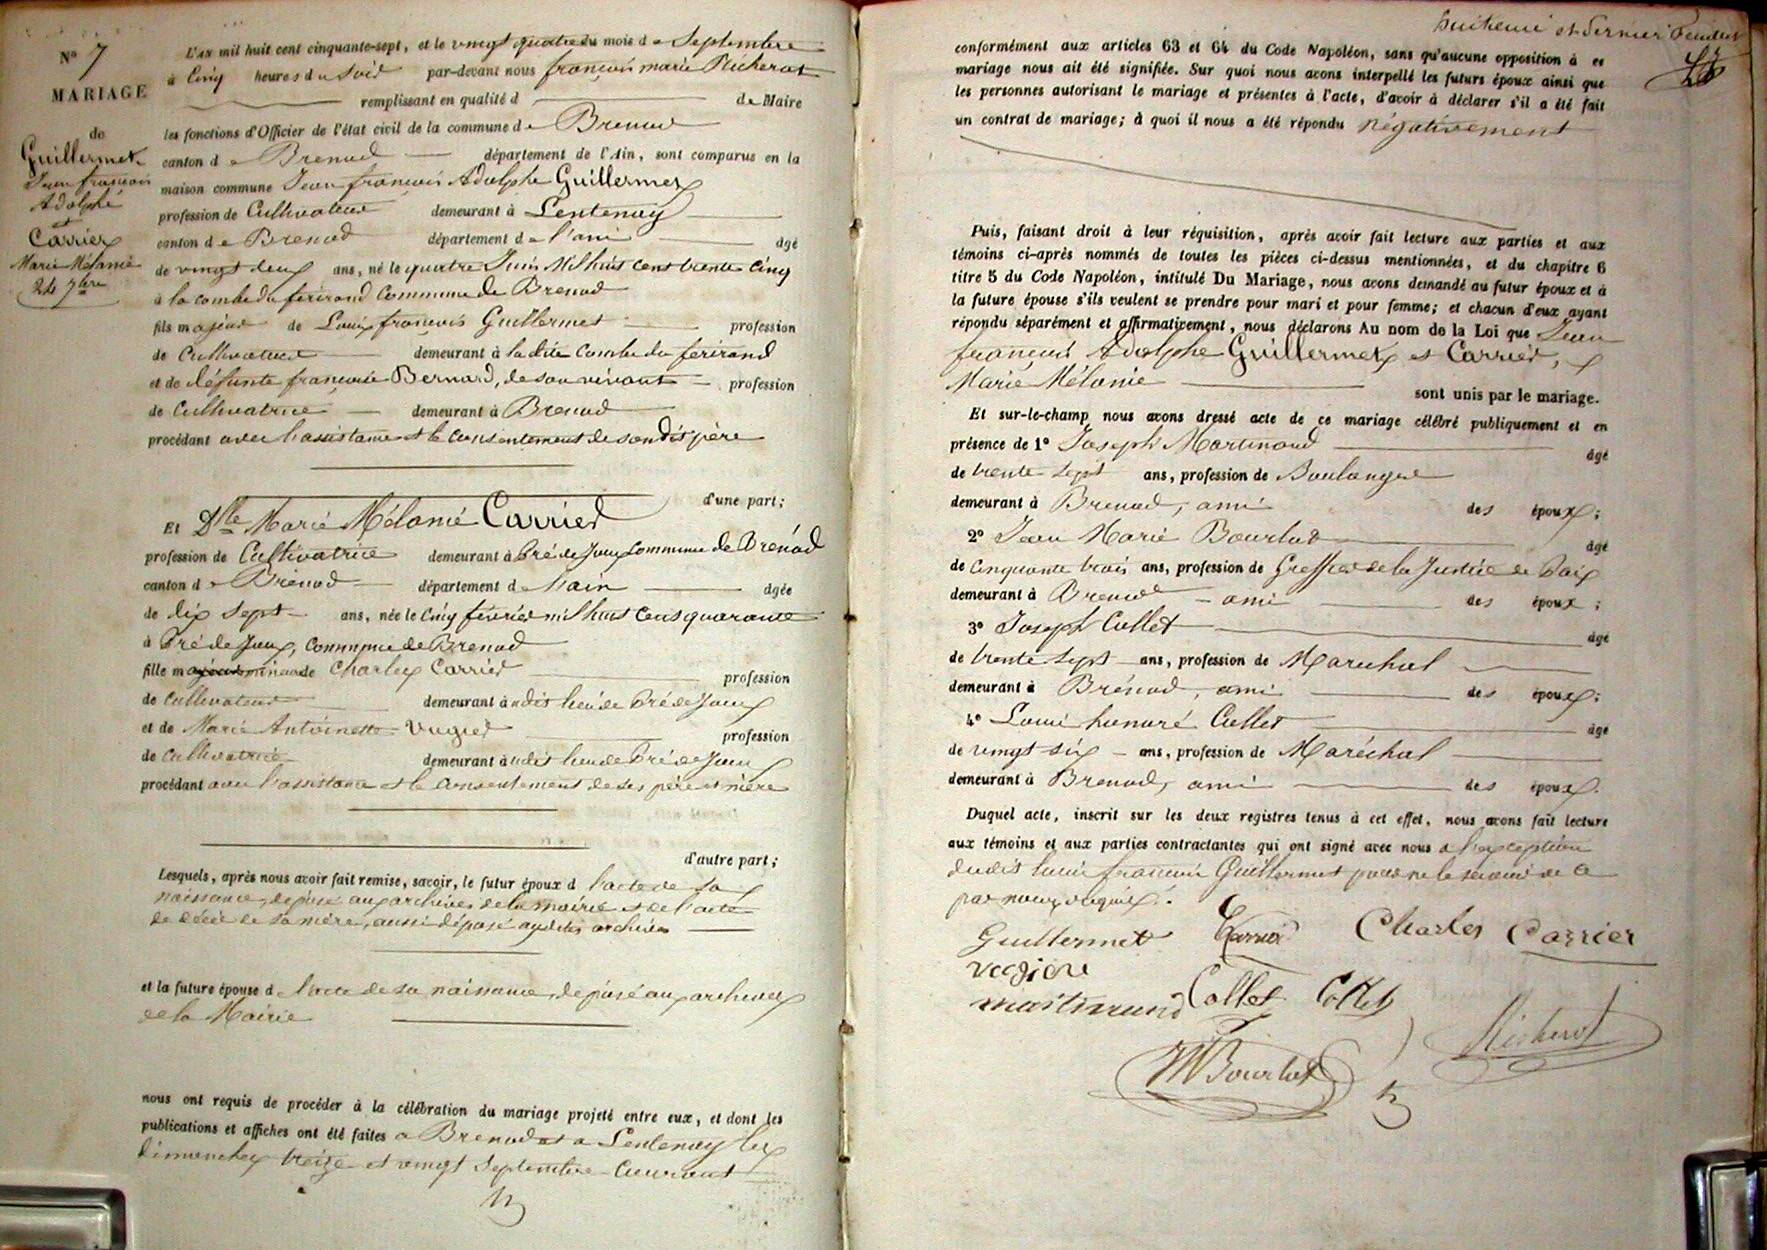 N° 7
MARIAGE
de
Guillermet
Jean françois
Adolphe
et
Carrier
Marie Mélanie
24 7bre
L'AN mil huit cent cinquante-sept, et le vingt quatre du mois de Septembre
à Cinq heures du Soir par-devant nous françois marie
remplissant en qualité d de Maire
les fonctions d'Officier de l'état civil de la commune de Brenod
canton de Brenod département de l'Ain, sont comparus en la
maison commune Jean françois Adolphe Guillermet
profession de Cultivateur demeurant à Lentenay
canton de Brenod département de l'ain âgé
de vingt deux ans, né le quatre Juin Mil huit cent trente cinq
à la combe du ferirand Commune de Brenod
fils majeur de Louis françois Guillermet profession
de Cultivateur demeurant à la dite Combe du ferirand
et de défunte françoise Bernard, de son vivant profession
de Cultivatrice demeurant à Brenod
procédant avec l'assistance et le Consentement de son dit père
d'une part;
Et Dlle Marie Mélanie Carrier
profession de Cultivatrice demeurant à Pré de Joux Commune de Brenod
canton de Brénod département de l'ain âgée
de dix sept ans, née le Cinq février mil huit Cent quarante
à Pré de Joux, Commune de Brenod
fille majeure mineure de Charles Carrier profession
de Cultivateur demeurant audit lieu de Pré de Joux
et de Marie Antoinette Vugier profession
de Cultivatrice demeurant audit lieu de Pré de Joux
procédant avec l'assistance et le Consentement de ses père et mère
d'autre part;
Lesquels, après nous avoir fait remise, savoir, le futur époux d l'acte de sa
naissance, déposé aux archives de la mairie et de l'acte
de décès de sa mère, aussi déposé auxdites archives
et la future épouse d l'acte de sa naissance, déposé aux archives
de la Mairie
nous ont requis de procéder à la célébration du mariage projeté entre eux, et dont les
publications et affiches ont été faites a Brenod et a Lentenay les
dimanches treize et vingt Septembre Courant
huitième et dernier feuillet
conformément aux articles 63 et 64 du Code Napoléon, sans qu'aucune opposition à ce
mariage nous ait été signifiée. Sur quoi nous avons interpellé les futurs époux ainsi que
les personnes autorisant le mariage et présentes à l'acte, d'avoir à déclarer s'il a été fait
un contrat de mariage; à quoi il nous a été répondu négativement
Puis, faisant droit à leur réquisition, après avoir fait lecture aux parties et aux
témoins ci-après nommés de toutes les pièces ci-dessus mentionnées, et du chapitre 6
titre 5 du Code Napoléon, intitulé Du Mariage, nous avons demandé au futur époux et à
la future épouse s'ils veulent se prendre pour mari et pour femme; et chacun d'eux ayant
répondu séparément et affirmativement, nous déclarons Au nom de la Loi que Jean
françois Adolphe Guillermet et Carrier,
Marie Mélanie
sont unis par le mariage.
Et sur-le-champ nous avons dressé acte de ce mariage célébré publiquement et en
présence de 1° Joseph Martinand âgé
de trente Sept ans, profession de Boulanger
demeurant à Brenod, ami des époux;
2° Jean Marie Bourlot âgé
de Cinquante trois ans, profession de Greffier de la Justice de Paix
demeurant à Brenod ami des époux;
3° Joseph Collet âgé
de trente Sept ans, profession de Marechal
demeurant à Brénod, ami des époux;
4° Louis honoré Collet âgé
de vingt six ans, profession de Maréchal
demeurant à Brenod, ami des époux.
Duquel acte, inscrit sur les deux registres tenus à cet effet, nous avons fait lecture
aux témoins et aux parties contractantes qui ont signé avec nous a l'exception
dudit Louis françois Guillermet pour ne le savoir de ce
par nous requis.
Guillermet Carrier Charles Carrier
vugier
martinand Collet Collet
JM Bourlot